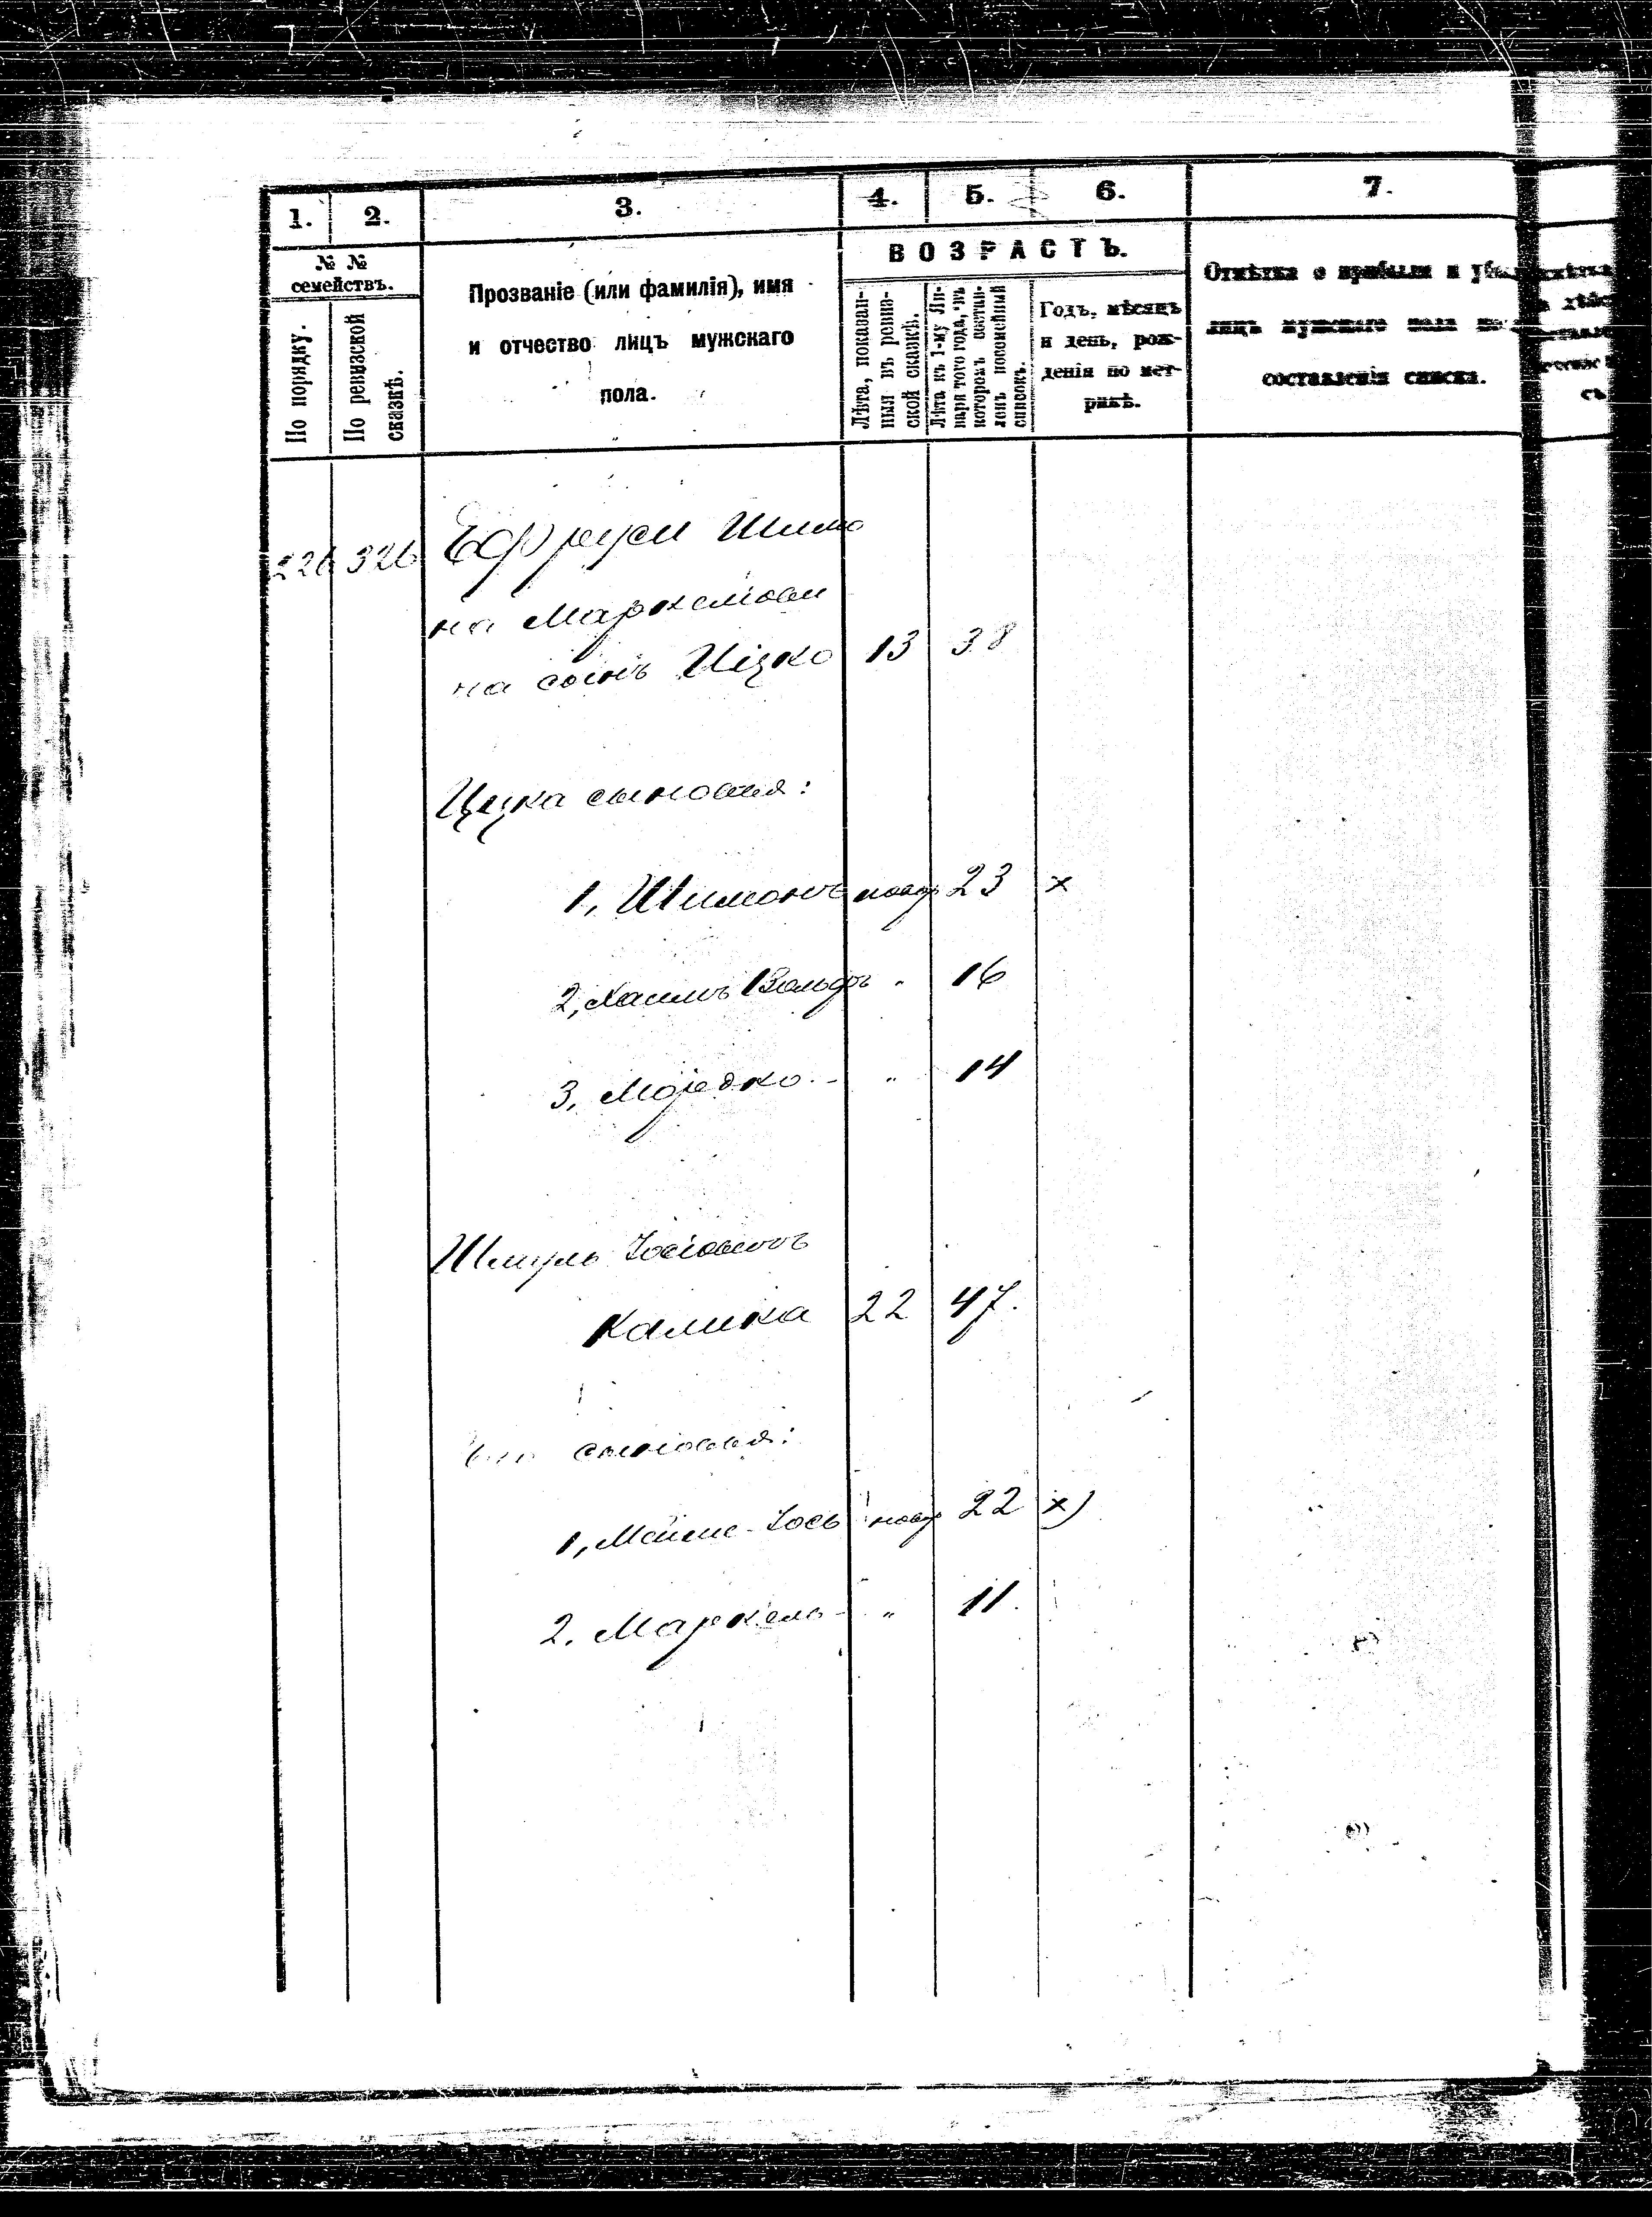 1. 2. 3. 4. 5. 6. 7.
№ №
семействъ.
По порядку.
По ревизской
сказкѣ.
Прозваніе (или фамилія), имя
и отчество лицъ мужскаго
пола.
ВОЗРАСТЪ.
Лѣта, показан-
ныя въ ревиз-
ской сказкѣ.
Лѣта къ 1-му Ян-
варя того года, въ
которомъ состав-
ленъ посемейный
списокъ.
Годъ, мѣсяцъ
и день, рож-
денія по мет-
рикѣ.
Отмѣтка о прибыли и
лицъ мужскаго пола
составленія списка.
226 326 Ефруси Шимо
на Маркелова
на сынъ Ицко 13 38
Ицка сыновья:
1, Шимонъ новор 23 x
2, Хаимъ Вольфъ " 16
3, Мордко - " 14
Шмуль Іосіовичъ
Калика 22 47.
Его сыновья:
1, Мойше-Іось новор 22 x)
2. Маркель - " 11.